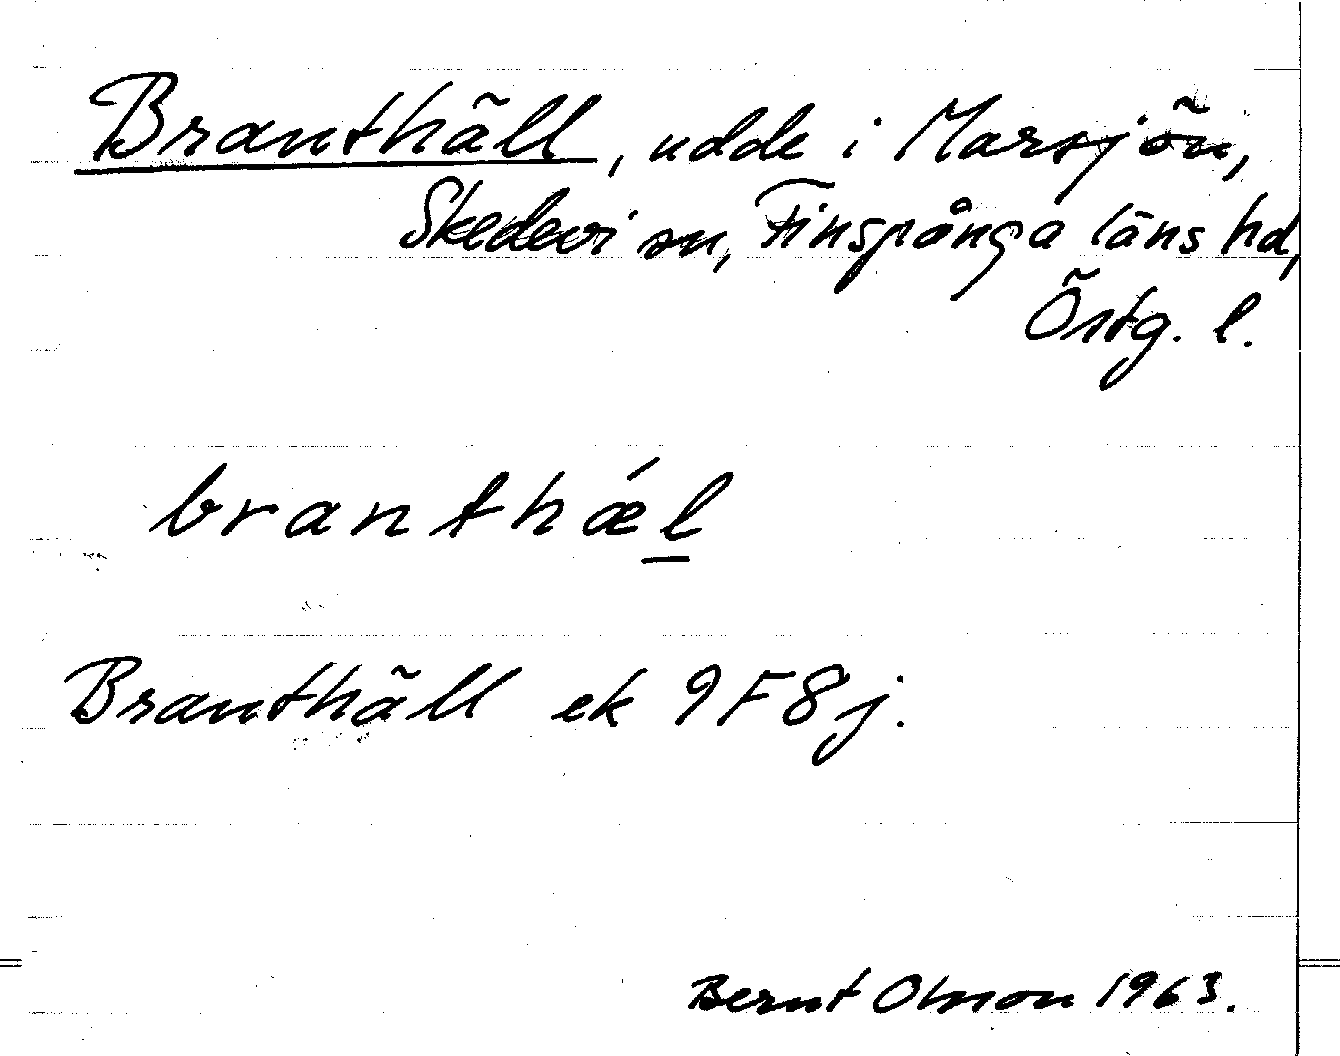 Branthäll, udde i Marsjön,
Skedevi sn, Finspånga läns hd,
Östg. l.
branthǽl
Branthäll ek 9F8j.
Bernt Olsson 1963.